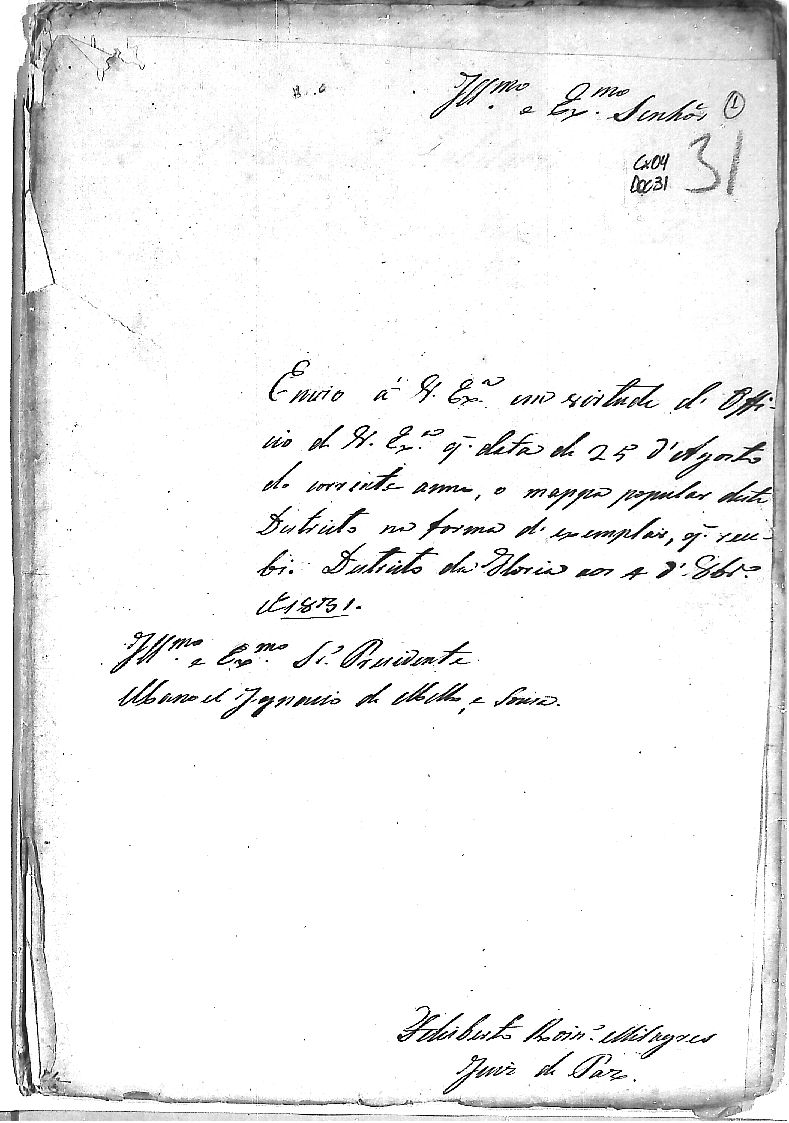 Ill.mo e Ex.mo Senhor
1
Cx04
Doc31
31
Envio á V. Ex.a em virtude d' Offi-
cio de V. Ex.a q. data de 25 d'Agosto
do corrente anno, o mappa popular deste
Districto na forma d' exemplar, q. rece-
bi. Districto da Gloria aos 4 d' 8br.o
de 1831.
Ill.mo e Ex.mo Sr. Presidente
Manoel Ignacio de Mello, e Souza.
Roiz.' Milagres
Juiz de Paz.